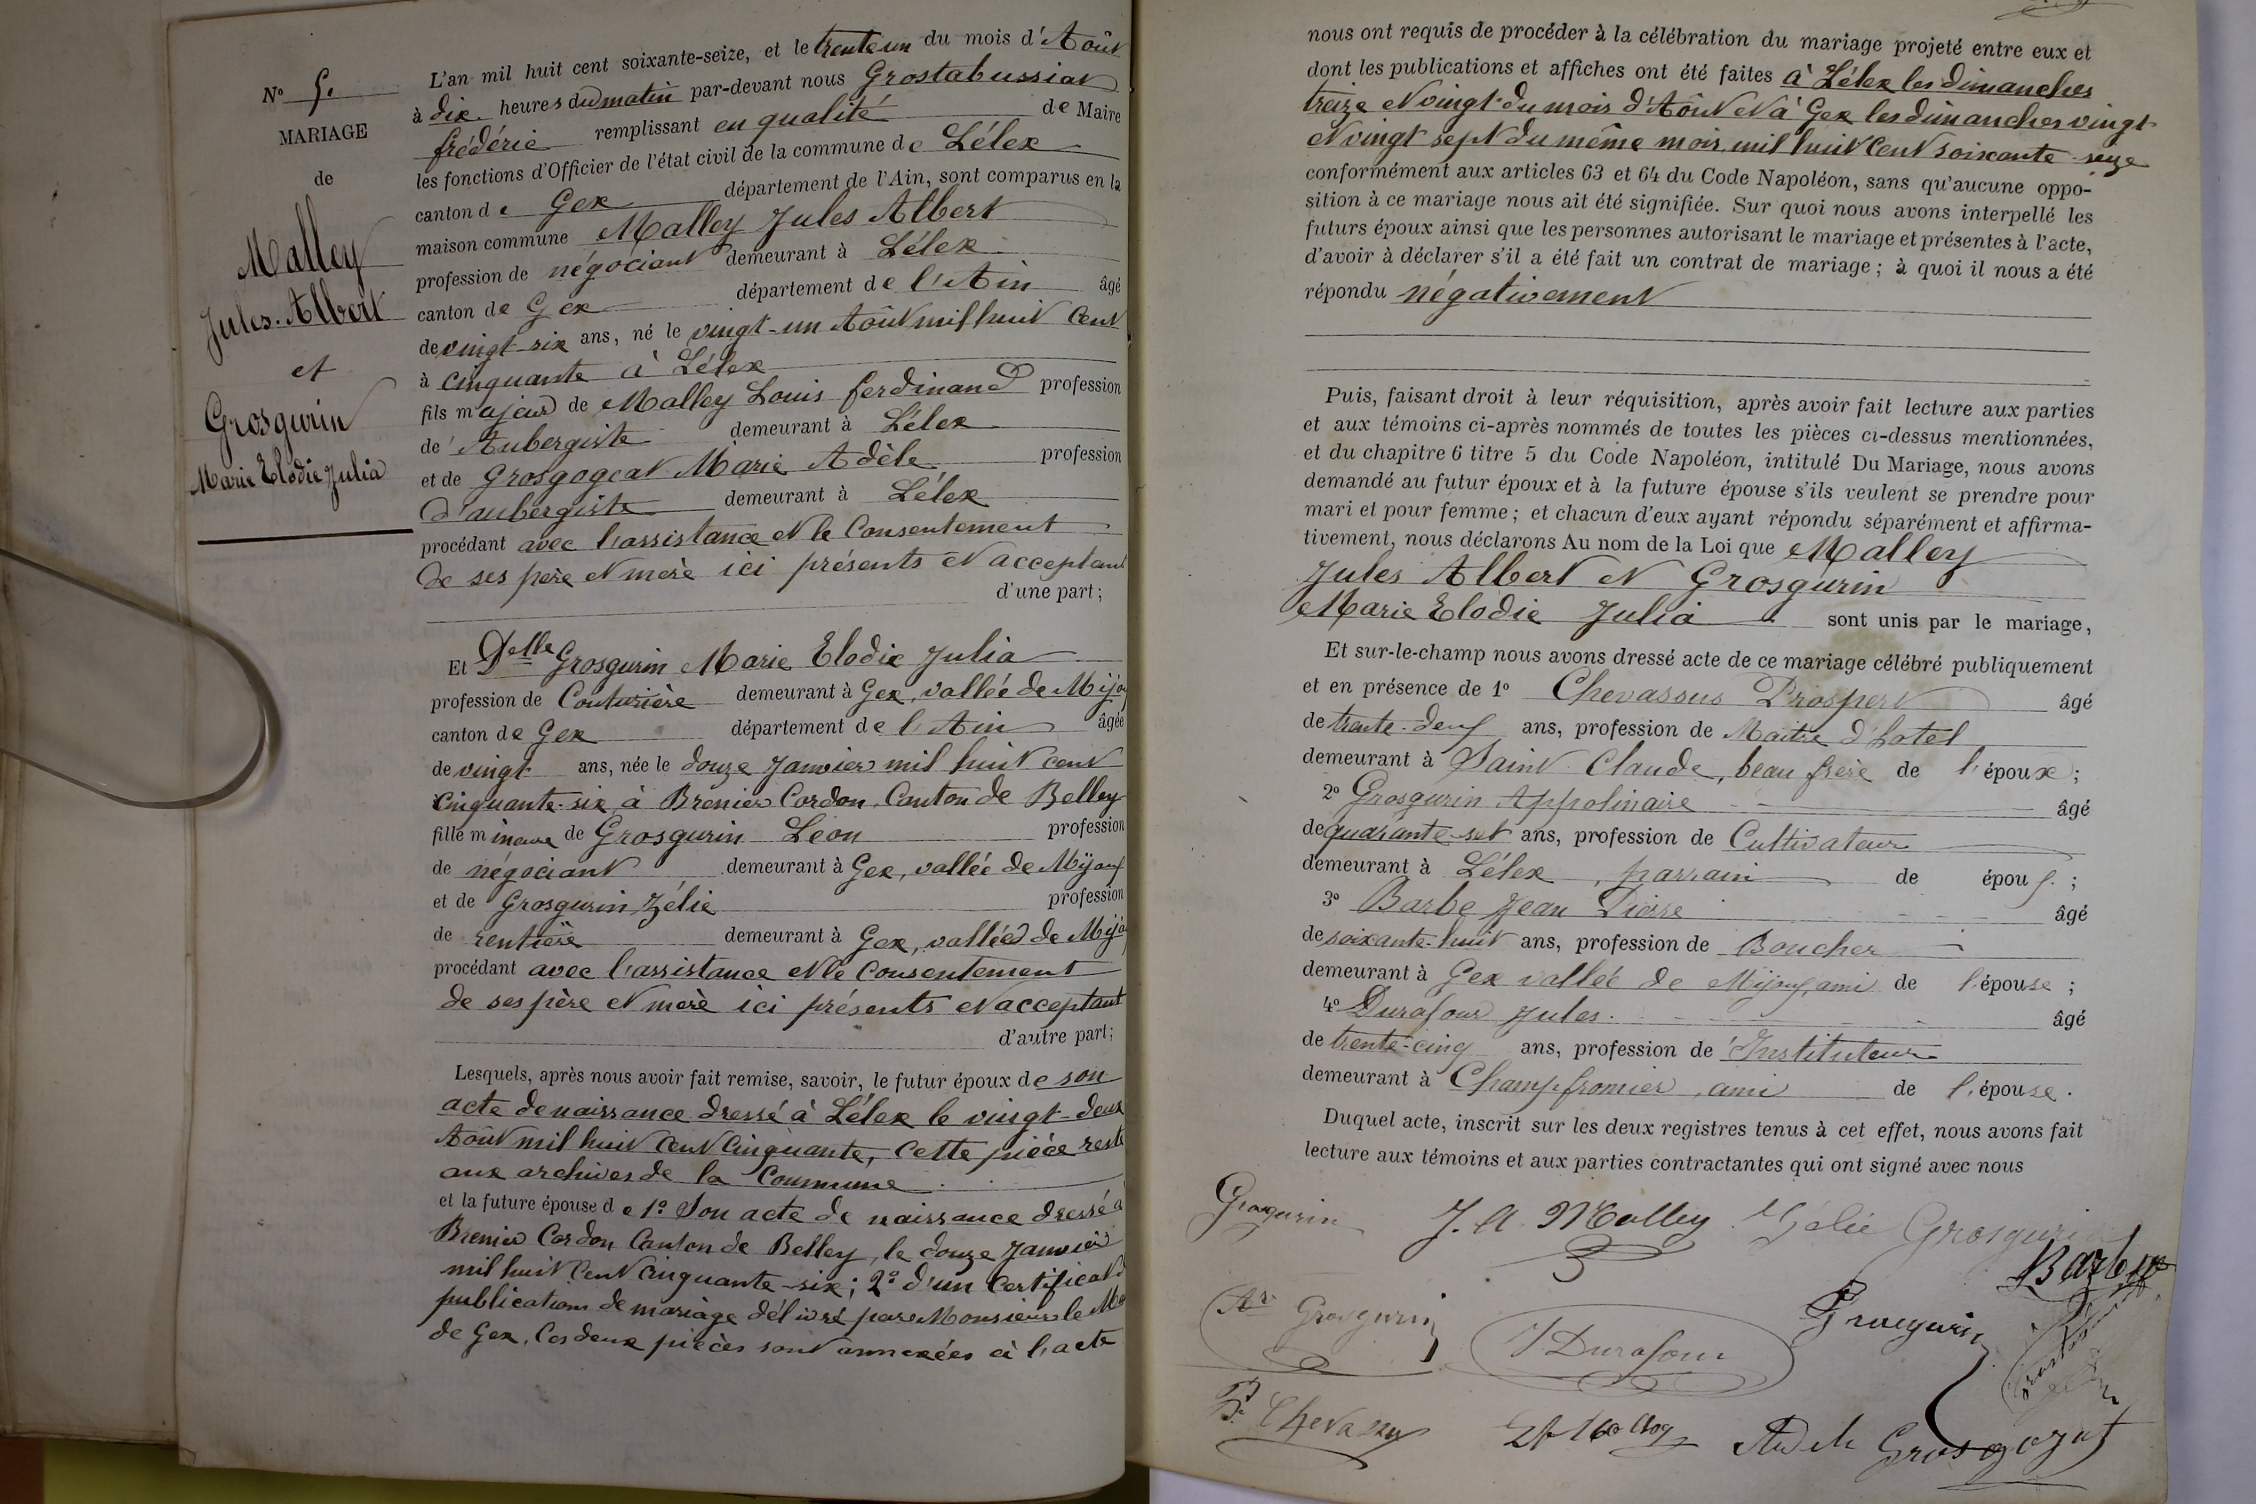 N° 5.
MARIAGE
de
Malley
Jules Albert
et
Grosgurin
Marie Elodie Julia
L'an mil huit cent soixante-seize, et le trente un du mois d'Août
à dix heures du matin par-devant nous Grostabussiat
frédéric remplissant en qualité de Maire
les fonctions d'Officier de l'état civil de la commune de Lélex
canton de Gex département de l'Ain, sont comparus en la
maison commune Malley Jules Albert
profession de négociant demeurant à Lélex
canton de Gex département de l'Ain âgé
de vingt-six ans, né le vingt-un Août mil huit cent
à cinquante à Lélex
fils majeur de Malley Louis ferdinand profession
de Aubergiste demeurant à Lélex
et de Grosgogeat Marie Adèle profession
d'aubergiste demeurant à Lélex
procédant avec l'assistance et le Consentement
de ses père et mère ici présents et acceptant
d'une part;
Et Delle Grosgurin Marie Elodie Julia
profession de Couturière demeurant à Gex, vallée de Mijoux
canton de Gex département de l'Ain âgée
de vingt ans, née le douze Janvier mil huit cent
cinquante-six à Brenier Cordon, Canton de Belley
fille mineure de Grosgurin Léon profession
de négociant demeurant à Gex, vallée de Mijoux
et de Grosgurin Zélie profession
de rentière demeurant à Gex, vallée de Mijo
procédant avec l'assistance et le Consentement
de ses père et mère ici présents et acceptant
d'autre part;
Lesquels, après nous avoir fait remise, savoir, le futur époux de son
acte de naissance dressé à Lélex le vingt-deux
Août mil huit cent Cinquante, Cette pièce reste
aux archives de la Commune.
et la future épouse de 1° Son acte de naissance dressé à
Brenier Cordon Canton de Belley, le douze Janvier
mil huit cent cinquante-six; 2° d'un Certificat d
publications de mariage délivré par Monsieur le Ma
de Gex, Ces deux pièces sont annexées à l'acte
nous ont requis de procéder à la célébration du mariage projeté entre eux et
dont les publications et affiches ont été faites à Lélex les dimanches
treize et vingt du mois d'Août et à Gex les dimanches vingt
et vingt sept du même mois mil huit cent soixante-seize
conformément aux articles 63 et 64 du Code Napoléon, sans qu'aucune oppo-
sition à ce mariage nous ait été signifiée. Sur quoi nous avons interpellé les
futurs époux ainsi que les personnes autorisant le mariage et présentes à l'acte,
d'avoir à déclarer s'il a été fait un contrat de mariage; à quoi il nous a été
répondu négativement
Puis, faisant droit à leur réquisition, après avoir fait lecture aux parties
et aux témoins ci-après nommés de toutes les pièces ci-dessus mentionnées,
et du chapitre 6 titre 5 du Code Napoléon, intitulé Du Mariage, nous avons
demandé au futur époux et à la future épouse s'ils veulent se prendre pour
mari et pour femme; et chacun d'eux ayant répondu séparément et affirma-
tivement, nous déclarons Au nom de la Loi que Malley
Jules Albert et Grosgurin
Marie Elodie Julia sont unis par le mariage,
Et sur-le-champ nous avons dressé acte de ce mariage célébré publiquement
et en présence de 1° Chevassus Prosper âgé
de trente-deux ans, profession de Maître d'hotel
demeurant à Saint Claude, beau frère de l'époux;
2° Grosgurin Appolinaire âgé
de quarante-set ans, profession de Cultivateur
demeurant à Lélex, parrain de épou
3° Barbe Jean Pierre âgé
de soixante-huit ans, profession de Boucher
demeurant à Gex vallée de Mijoux, ami de l'épouse;
4° Durafour Jules. âgé
de trente-cinq ans, profession de Instituteur
demeurant à Champfromier, ami de l'épouse.
Duquel acte, inscrit sur les deux registres tenus à cet effet, nous avons fait
lecture aux témoins et aux parties contractantes qui ont signé avec nous
Grosgurin J. A. Malley Zélie Grosgurin
Barbe
Ar. Grosgurin J Durafour Grosgurin
P. Chevassus Adele Grosgogeat